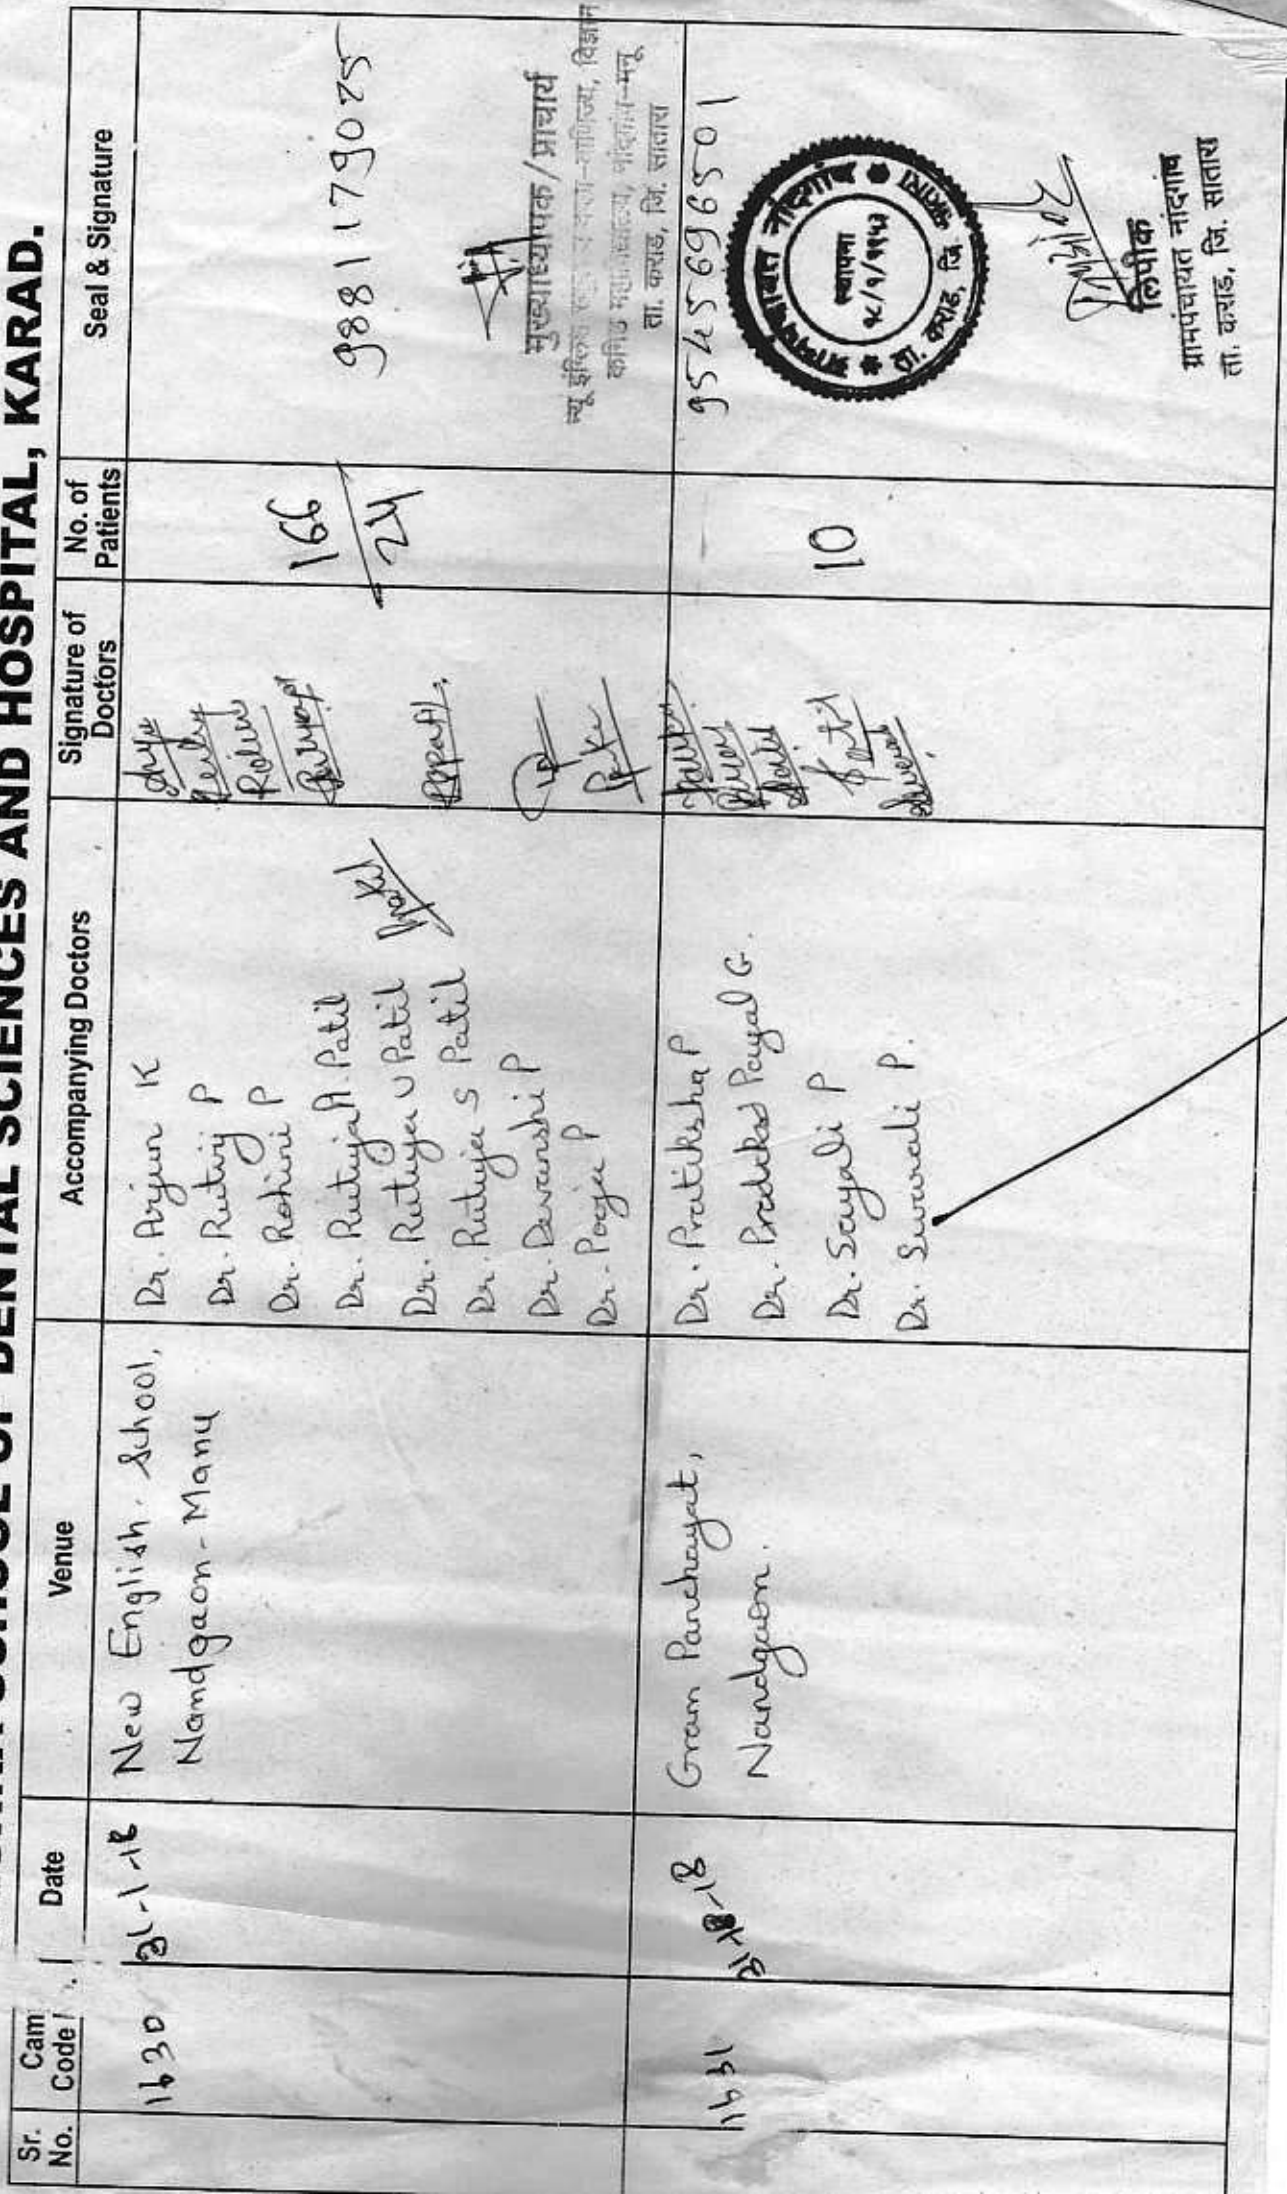 SCHOOL OF DENTAL SCIENCES AND HOSPITAL, KARAD.
Sr. No.
Cam Code
Date
Venue
Accompanying Doctors
Signature of Doctors
No. of Patients
Seal & Signature
1630
31-1-18
New English School,
Nandgaon - Manu
Dr. Arjun K
Dr. Rutvij P
Dr. Rohini P
Dr. Rutuja A. Patil
Dr. Rutuja U Patil
Dr. Rutuja S Patil
Dr. Devanshi P
Dr. Pooja P
166
24
9881179025
मुख्याध्यापक / प्राचार्य
ता. कराड, जि. सातारा
1631
31-18-18
Gram Panchayat,
Nandgaon.
Dr. Pratiksha P
Dr. Payal G.
Dr. Sayali P
Dr. P.
10
9545696501
ग्रामपंचायत नांदगांव
स्थापना
ता. कराड, जि. सातारा
लिपीक
ग्रामपंचायत नांदगांव
ता. कराड, जि. सातारा